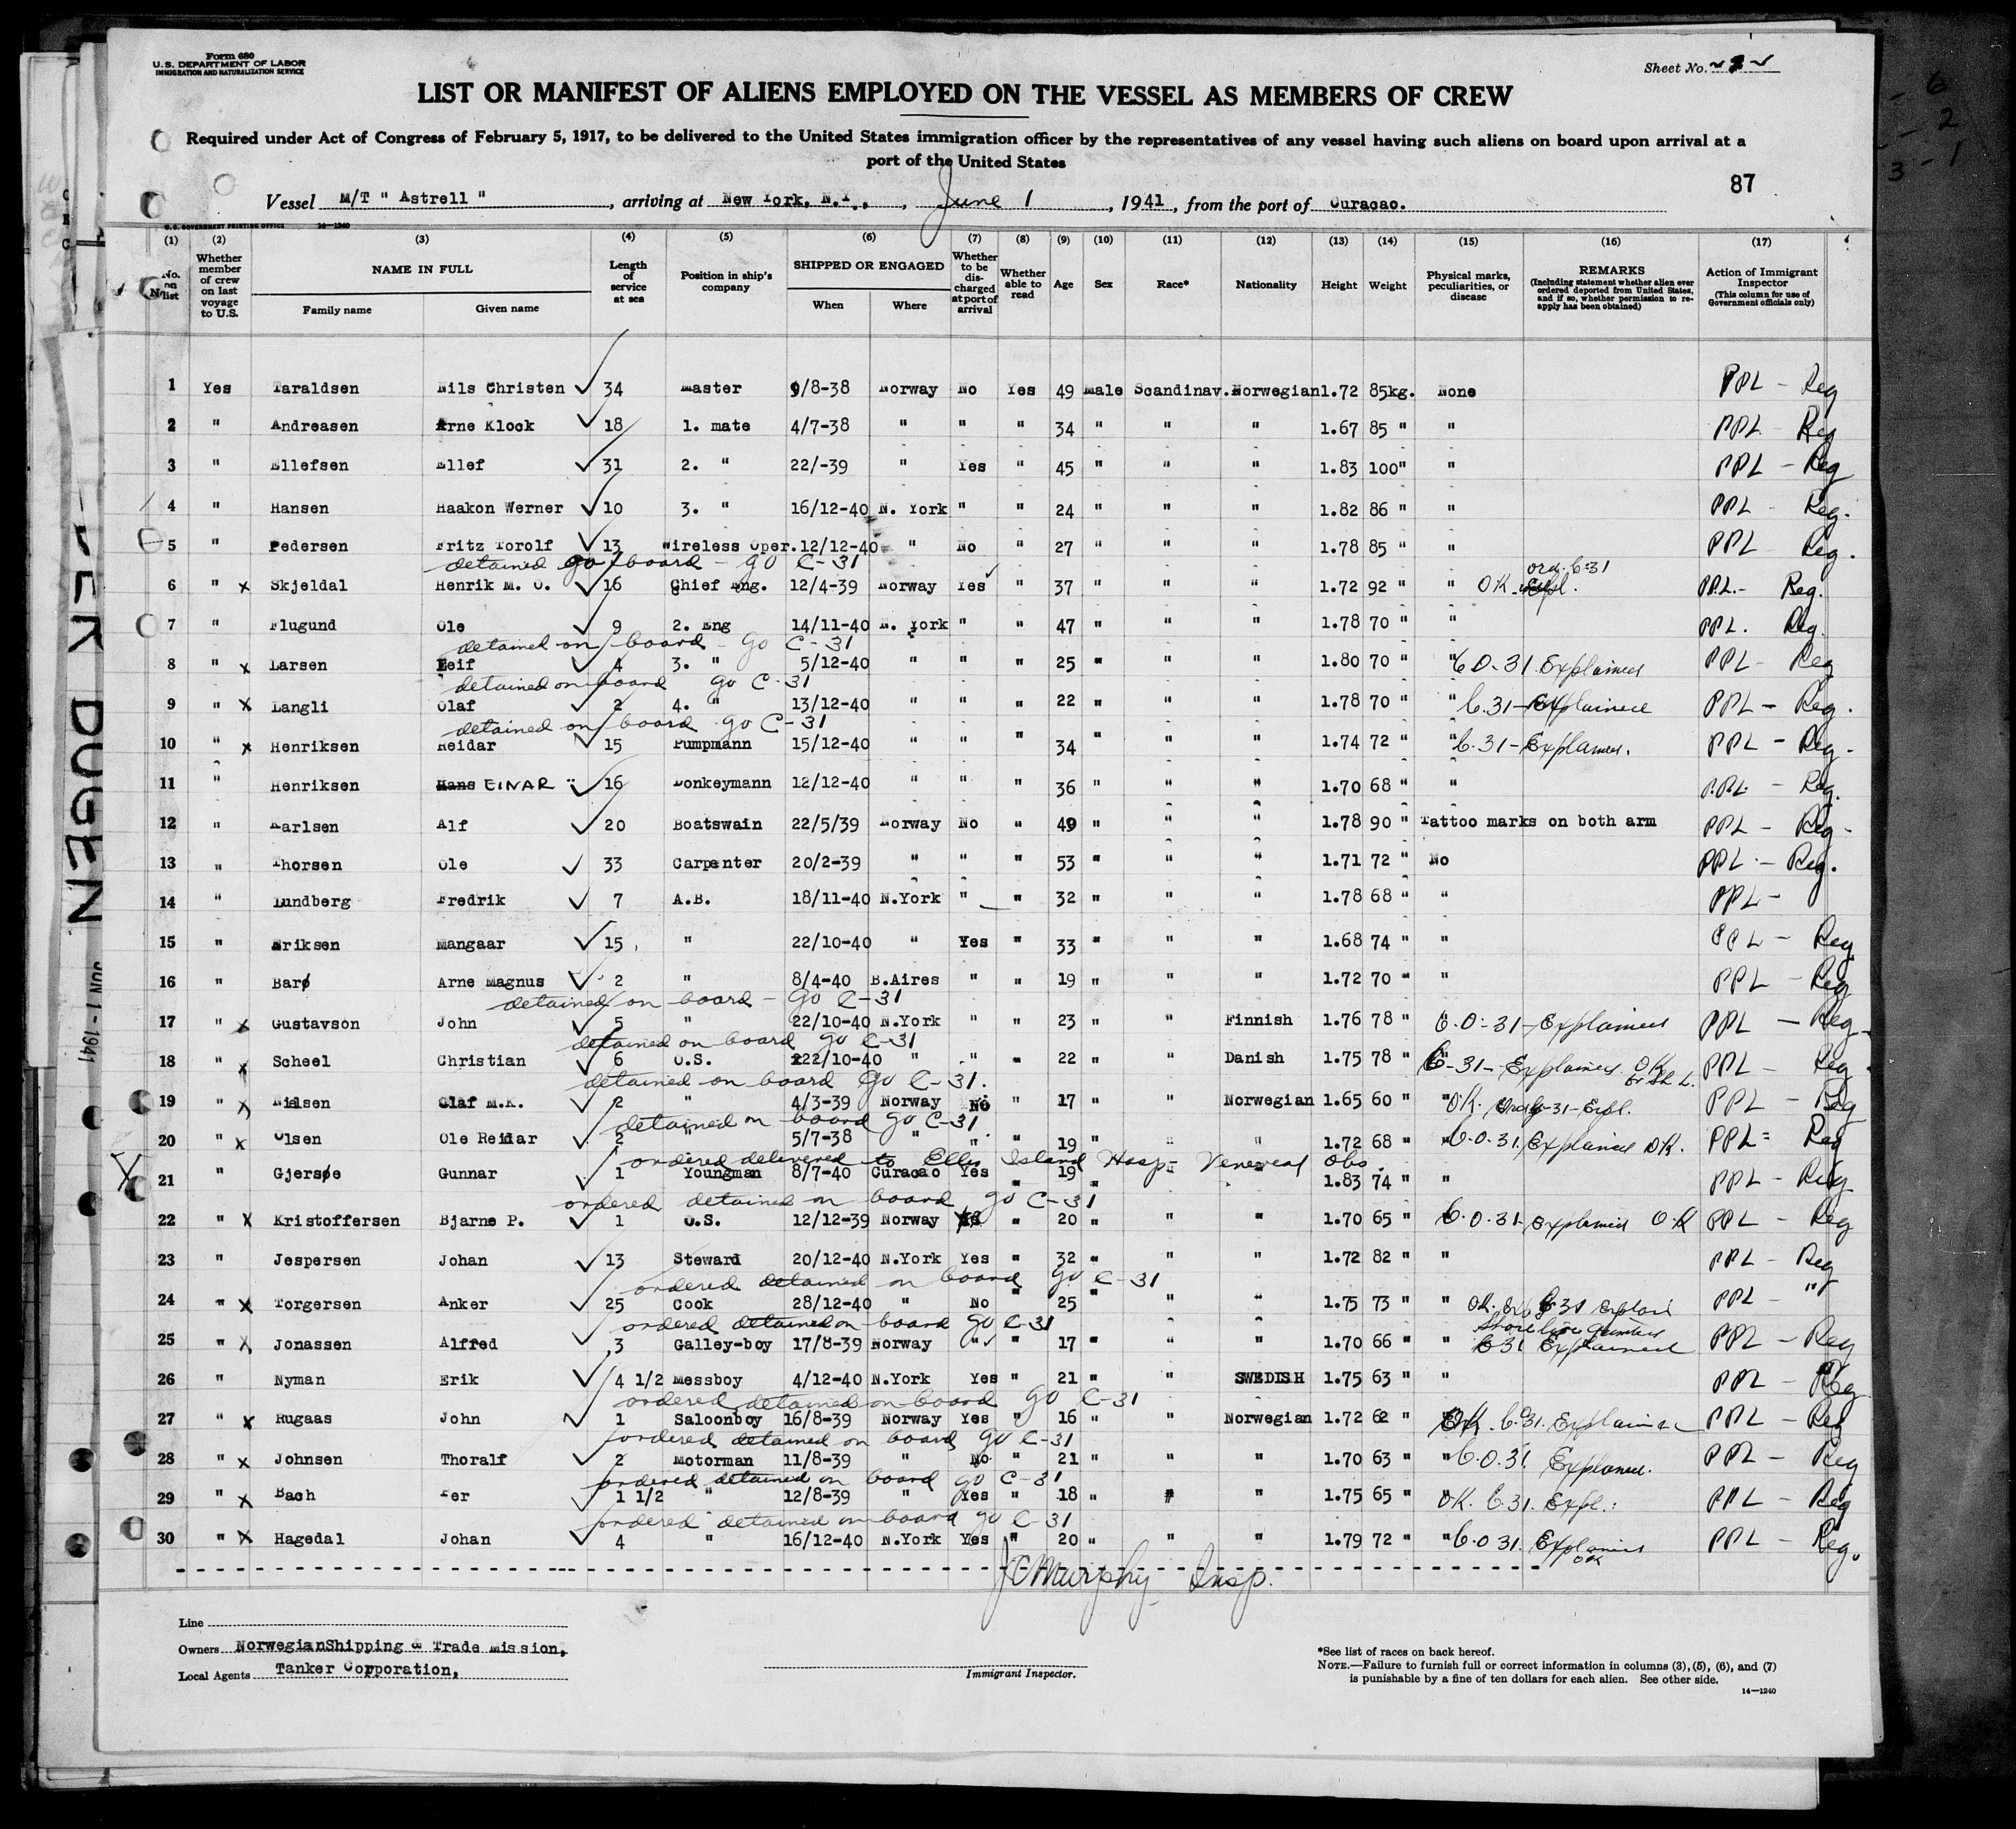 Form 680
U.S. DEPARTMENT OF LABOR
IMMIGRATION AND NATURALIZATION SERVICE
Sheet No.
LIST OR MANIFEST OF ALIENS EMPLOYED ON THE VESSEL AS MEMBERS OF CREW
Required under Act of Congress of February 5, 1917, to be delivered to the United States immigration officer by the representatives of any vessel having such aliens on board upon arrival at a
port of the United States
87
Vessel M/T " Astrell " , arriving at New York, N.Y., , June 1 , 1941 , from the port of Curacao.
U.S. GOVERNMENT PRINTING OFFICE 14—1240
(1) (2) (3) (4) (5) (6) (7) (8) (9) (10) (11) (12) (13) (14) (15) (16) (17)
No. on list
Whether member of crew on last voyage to U.S.
NAME IN FULL
Family name Given name
Length of service at sea
Position in ship's company
SHIPPED OR ENGAGED
When Where
Whether to be discharged at port of arrival
Whether able to read
Age Sex Race* Nationality Height Weight
Physical marks, peculiarities, or disease
REMARKS
(Including statement whether alien ever ordered deported from United States, and if so, whether permission to reapply has been obtained)
Action of Immigrant Inspector
(This column for use of Government officials only)
1 Yes Taraldsen Nils Christen 34 Master 9/8-38 Norway No Yes 49 Male Scandinav. Norwegian 1.72 85kg. None PPL - Reg
2 " Andreasen Arne Klock 18 1. mate 4/7-38 " " " 34 " " " 1.67 85 " " PPL - Reg
3 " Ellefsen Ellef 31 2. " 22/-39 " Yes " 45 " " " 1.83 100" " PPL - Reg
4 " Hansen Haakon Werner 10 3. " 16/12-40 N. York " " 24 " " " 1.82 86 " " PPL - Reg.
5 " Pedersen Fritz Torolf 13 Wireless Oper. 12/12-40 " No " 27 " " " 1.78 85 " " PPL Reg.
detained on board - go C-31
6 " x Skjeldal Henrik M. O. 16 Chief Eng. 12/4-39 Norway Yes " 37 " " " 1.72 92 " " OK PPL.- Reg.
7 " Flugund Ole 9 2. Eng 14/11-40 N. York " " 47 " " " 1.78 70 " " PPL. Reg.
detained on board - go C-31
8 " x Larsen Leif 4 3. " 5/12-40 " " " 25 " " " 1.80 70 " " C.O.31. Explained PPL - Reg
detained on board go C-31
9 " x Langli Olaf 2 4. " 13/12-40 " " " 22 " " " 1.78 70 " " C.31 - Explained PPL - Reg.
detained on board go C-31
10 " x Henriksen Reidar 15 Pumpmann 15/12-40 " " " 34 " " " 1.74 72 " " C.31 - Explained. PPL - Reg.
11 " Henriksen Hans EINAR 16 Donkeymann 12/12-40 " " " 36 " " " 1.70 68 " " PPL - Reg.
12 " Karlsen Alf 20 Boatswain 22/5/39 Norway No " 49 " " " 1.78 90 " Tattoo marks on both arm PPL - Reg.
13 " Thorsen Ole 33 Carpenter 20/2-39 " " " 53 " " " 1.71 72 " No PPL - Reg.
14 " Lundberg Fredrik 7 A.B. 18/11-40 N.York " " 32 " " " 1.78 68 " " PPL -
15 " Eriksen Mangaar 15 " 22/10-40 " Yes " 33 " " " 1.68 74 " " PPL - Reg
16 " Barø Arne Magnus 2 " 8/4-40 B.Aires " " 19 " " " 1.72 70 " " PPL - Reg
detained on board - go C-31
17 " x Gustavson John 5 " 22/10-40 N.York " " 23 " " Finnish 1.76 78 " C.O-31 - Explained PPL - Reg.
detained on board go C-31
18 " x Scheel Christian 6 O.S. 222/10-40 " " " 22 " " Danish 1.75 78 " C-31 - Explained OK PPL - Reg.
detained on board go C-31.
19 " x Nielsen Olaf M.K. 2 " 4/3-39 Norway No " 17 " " Norwegian 1.65 60 " " OK. Ord C-31 - Expl. PPL - Reg
detained on board go C-31
20 " x Olsen Ole Reidar 2 " 5/7-38 " " " 19 " " " 1.72 68 " " C.O.31. Explained OK. PPL = Reg
ordered delivered to Ellis Island Hosp - Venereal Obs.
21 " Gjersøe Gunnar 1 Youngman 8/7-40 Curacao Yes " 19 " " " 1.83 74 " " PPL - Reg
ordered detained on board go C-31
22 " x Kristoffersen Bjarne P. 1 O.S. 12/12-39 Norway " 20 " " " 1.70 65 " " C.O.31 - Explained OK PPL - Reg
23 " Jespersen Johan 13 Steward 20/12-40 N.York Yes " 32 " " " 1.72 82 " " PPL - Reg
ordered detained on board go C-31
24 " x Torgersen Anker 25 Cook 28/12-40 " No " 25 " " " 1.75 73 " " OK. C-31 PPL - "
ordered detained on board go C-31
25 " x Jonassen Alfred 3 Galley-boy 17/8-39 Norway " " 17 " " " 1.70 66 " " C-31 Explained PPL - Reg
26 " Nyman Erik 4 1/2 Messboy 4/12-40 N.York Yes " 21 " " SWEDISH 1.75 63 " " PPL - Reg
ordered detained on board go C-31
27 " x Rugaas John 1 Saloonboy 16/8-39 Norway Yes " 16 " " Norwegian 1.72 62 " OK. C.31. Explained PPL - Reg
ordered detained on board go C-31
28 " x Johnsen Thoralf 2 Motorman 11/8-39 " No " 21 " " " 1.70 63 " " C.O.31. Explained. PPL - Reg
ordered detained on board go C-31
29 " x Bach Per 1 1/2 " 12/8-39 " Yes " 18 " " " 1.75 65 " " O.K. C.31. Expl.: PPL - Reg
ordered detained on board go C-31
30 " x Hagedal Johan 4 " 16/12-40 N.York Yes " 20 " " " 1.79 72 " " C.O 31. Explained OK PPL - Reg.
J C Murphy Insp.
Line
Owners NorwegianShipping & Trade Mission,
Local Agents Tanker Corporation,
Immigrant Inspector.
*See list of races on back hereof.
NOTE.—Failure to furnish full or correct information in columns (3), (5), (6), and (7)
is punishable by a fine of ten dollars for each alien. See other side.
14—1240
DUGEN
JUN 1 - 1941